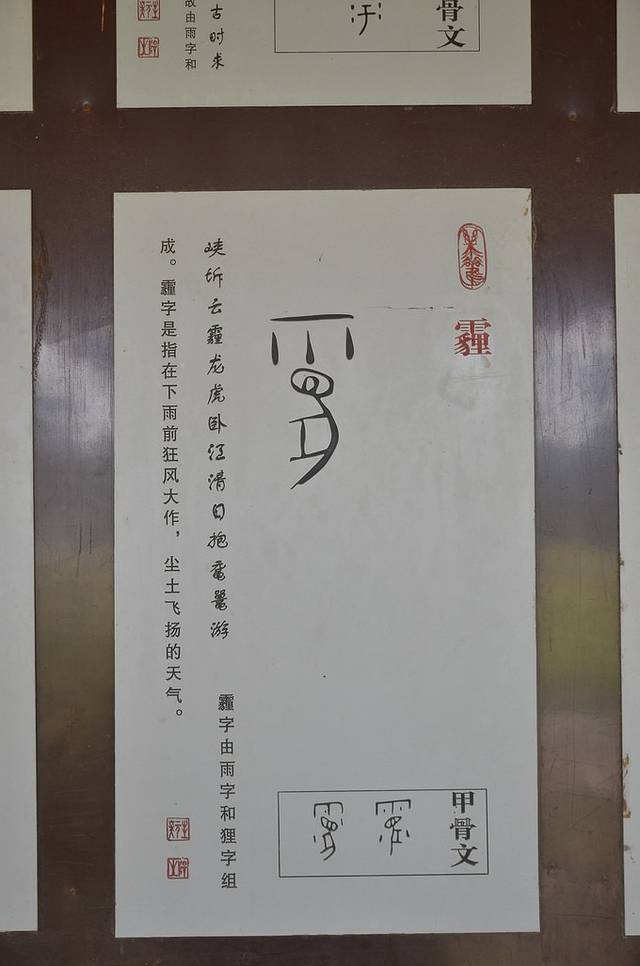 骨文
古时求
故由雨字和
霾
甲骨文
峡坼云霾龙虎卧江清日抱鼋鼍游
霾字由雨字和狸字组
成。霾字是指在下雨前狂风大作，尘土飞扬的天气。